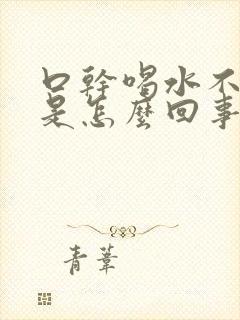 口幹喝水不
是怎麼回事
青葦